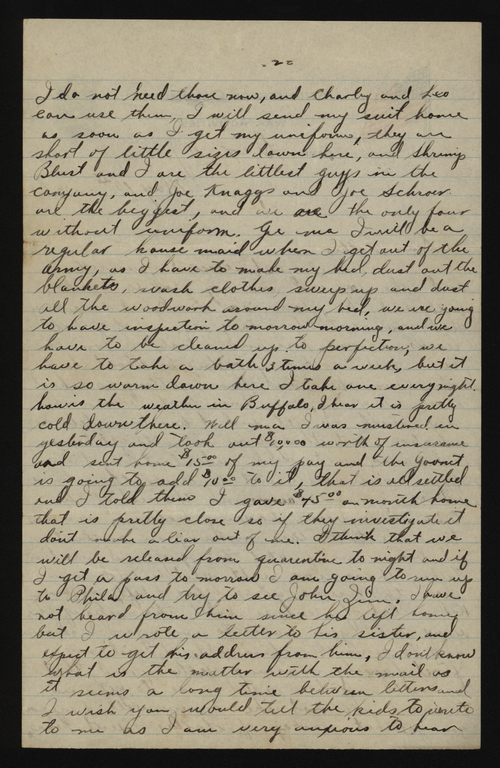 -2-
I do not need those now, and Charley and Leo
can use them, I will send my suit home
as soon as I get my uniform, they are
short of little sizes down here, and Shrimp
Bluet and I are the littlest guys in the
company, and Joe Knaggs and Joe Schroer
are the biggest, and we are the only four
without uniform. Ge ma I will be a
regular house maid when I get out of the
army, as I have to make my bed, dust out the
blankets, wash clothes sweep up and dust
all the woodwork around my bed, we are going
to have inspection to morrow morning, and we
have to be cleaned up to perfection, we
have to take a bath 3 times a week, but it
is so warm down here I take one every night.
how is the weather in Buffalo, I hear it is pretty
cold down there. Well ma I was mustered in
yesterday and took out $10,000 worth of insurance
and sent home $15.00 of my pay and the
is going to add $10.00 to it, that is all settled
and I told them I gave $45.00 a month home
that is pretty close so if they investigate it
don't make a liar out of me. I think that we
will be released from quarentine to night and if
I get a pass to morrow I am going to run up
to Phila and try to see John Zinn. I have
not heard from him since he left home
but I wrote a letter to his sister, and
expect to get his address from him, I dont know
what is the matter with the mail as
it seems a long time between letters and
I wish you would tell the kids to write
to me as I am very anxious to hear